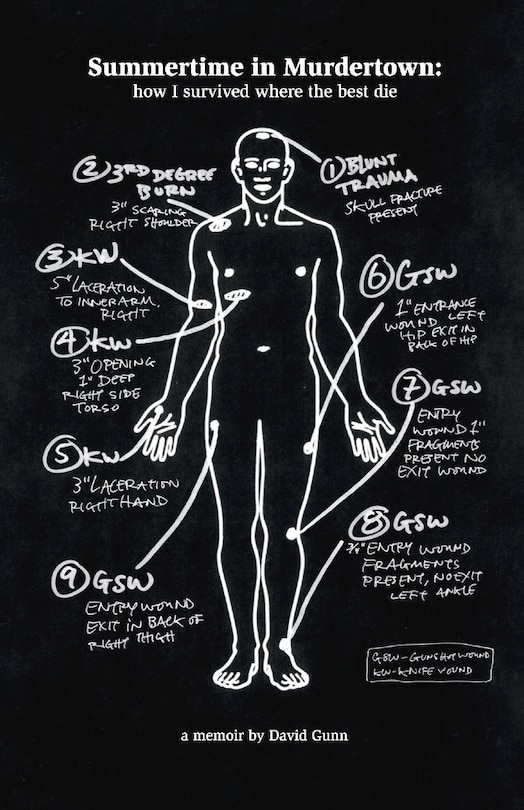 Summertime in Murdertown:
how I survived where the best die
① BLUNT
TRAUMA
SKULL FRACTURE
PRESENT
② 3RD DEGREE
BURN
3" SCARING
RIGHT SHOULDER
③ KW
5" LACERATION
TO INNER ARM,
RIGHT
④ KW
3" OPENING
1" DEEP
RIGHT SIDE
TORSO
⑤ KW
3" LACERATION
RIGHT HAND
⑥ GSW
1" ENTRANCE
WOUND LEFT
HIP EXIT IN
BACK OF HIP
⑦ GSW
ENTRY
WOUND 1"
FRAGMENTS
PRESENT NO
EXIT WOUND
⑧ GSW
3/4" ENTRY WOUND
FRAGMENTS
PRESENT, NO EXIT
LEFT ANKLE
⑨ GSW
ENTRY WOUND
EXIT IN BACK OF
RIGHT THIGH
GSW-GUNSHOT WOUND
KW-KNIFE WOUND
a memoir by David Gunn